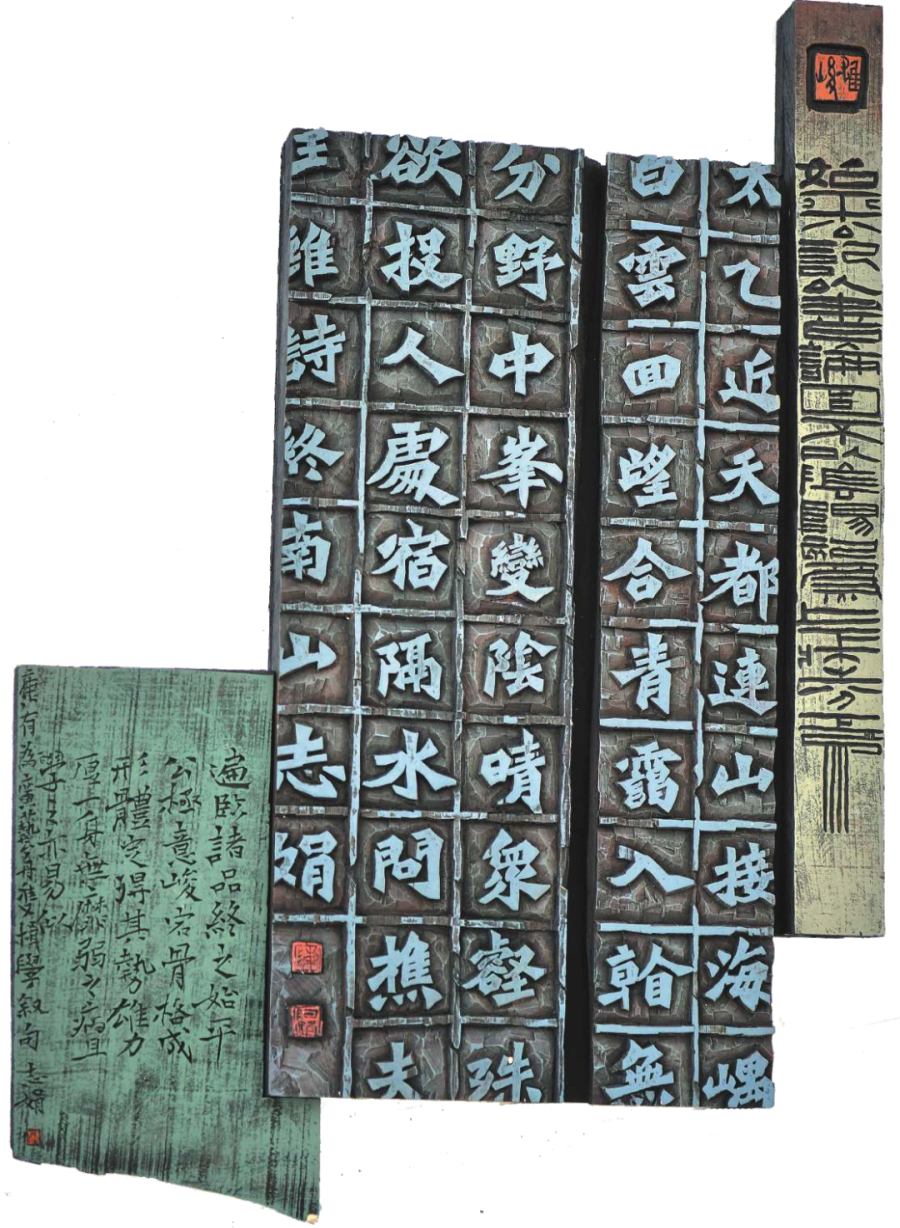 雄峻
始平公記
太乙近天都連山接海嵎
白雲囬望合青靄入看無
分野中峯變陰晴眾壑殊
欲投人處宿隔水問樵夫
王維詩終南山志娟
遍臨諸品終之始平
公極意峻宕骨格成
形體定得其勢雄力
厚一身無靡弱之病且
學之亦易似
康有為廣藝舟雙楫學叙句 志娟